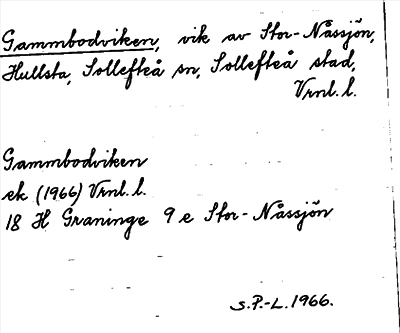 Gammbodviken, vik av Stor-Nässjön,
Hullsta, Sollefteå sn, Sollefteå stad,
Vrnl. l.
Gammbodviken
ek (1966) Vrnl. l.
18 H Graninge 9 e Stor-Nässjön
S.P.-L. 1966.